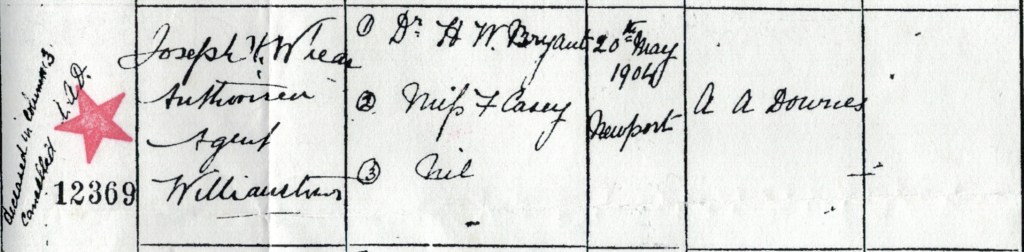 deceased in column 3
cancelled
12369
Joseph K. Wrear
Authorised
Agent
Williamstown
① Dr H W. Bryant
② Miss F Casey
③ Nil
20th May
1904
Newport
A A Downes